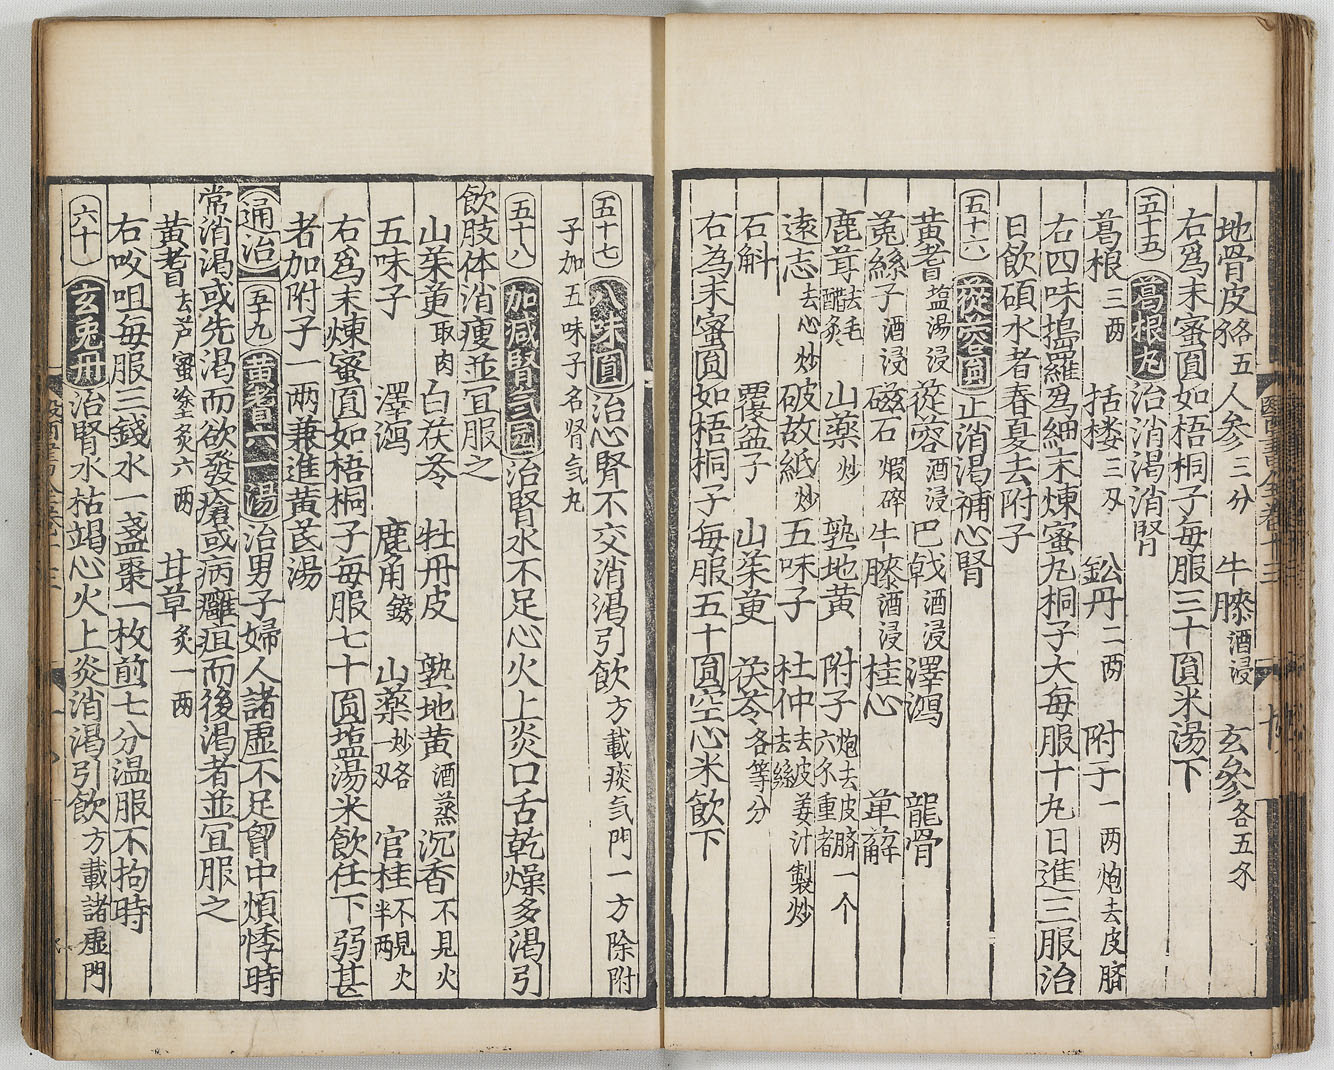 地骨皮各五分 人參三分 牛膝酒浸 玄參各五分
右爲末蜜圓如梧桐子每服三十圓米湯下
五十五 葛根丸 治消渴消腎
葛根三两 括楼三刄 鈆丹二两 附子一两炮去皮臍
右四味搗羅爲細末煉蜜丸桐子大每服十丸日進三服治
日飲碩水者春夏去附子
五十六 蓯容圓 止消渴補心腎
黃耆盐湯浸 蓯容酒浸 巴戟酒浸 澤瀉 龍骨
菟絲子酒浸 磁石煆碎 牛膝酒浸 桂心 萆薢
鹿茸去毛醋炙 山藥炒 熟地黃 附子炮去皮臍一个六分重者
遠志去心炒 破故紙炒 五味子 杜仲去皮姜汁製炒去絲
石斛 覆盆子 山茱萸 茯苓各等分
右為末蜜圓如梧桐子每服五十圓空心米飲下
五十七 八味圓 治心腎不交消渴引飲方載痰气門一方除附
子加五味子名腎气丸
五十八 加減腎气圆 治腎水不足心火上炎口舌乾燥多渴引
飲肢体消瘦並宜服之
山茱萸取肉 白茯苓 牡丹皮 熟地黃酒蒸 沉香不見火
五味子 澤瀉 鹿角鎊 山藥炒各一刄 官桂不見火半两
右爲末煉蜜圓如梧桐子每服七十圓塩湯米飲任下弱甚
者加附子一两兼進黃芪湯
通治 五十九 黃耆六一湯 治男子婦人諸虛不足胷中煩悸時
常消渴或先渴而欲發瘡或病癰疽而後渴者並宜服之
黃耆去芦蜜塗炙六两 甘草炙一两
右㕮咀每服三錢水一盞棗一枚煎七分温服不拘時
六十 玄兎丹 治腎水枯竭心火上炎消渴引飲方載諸虛門